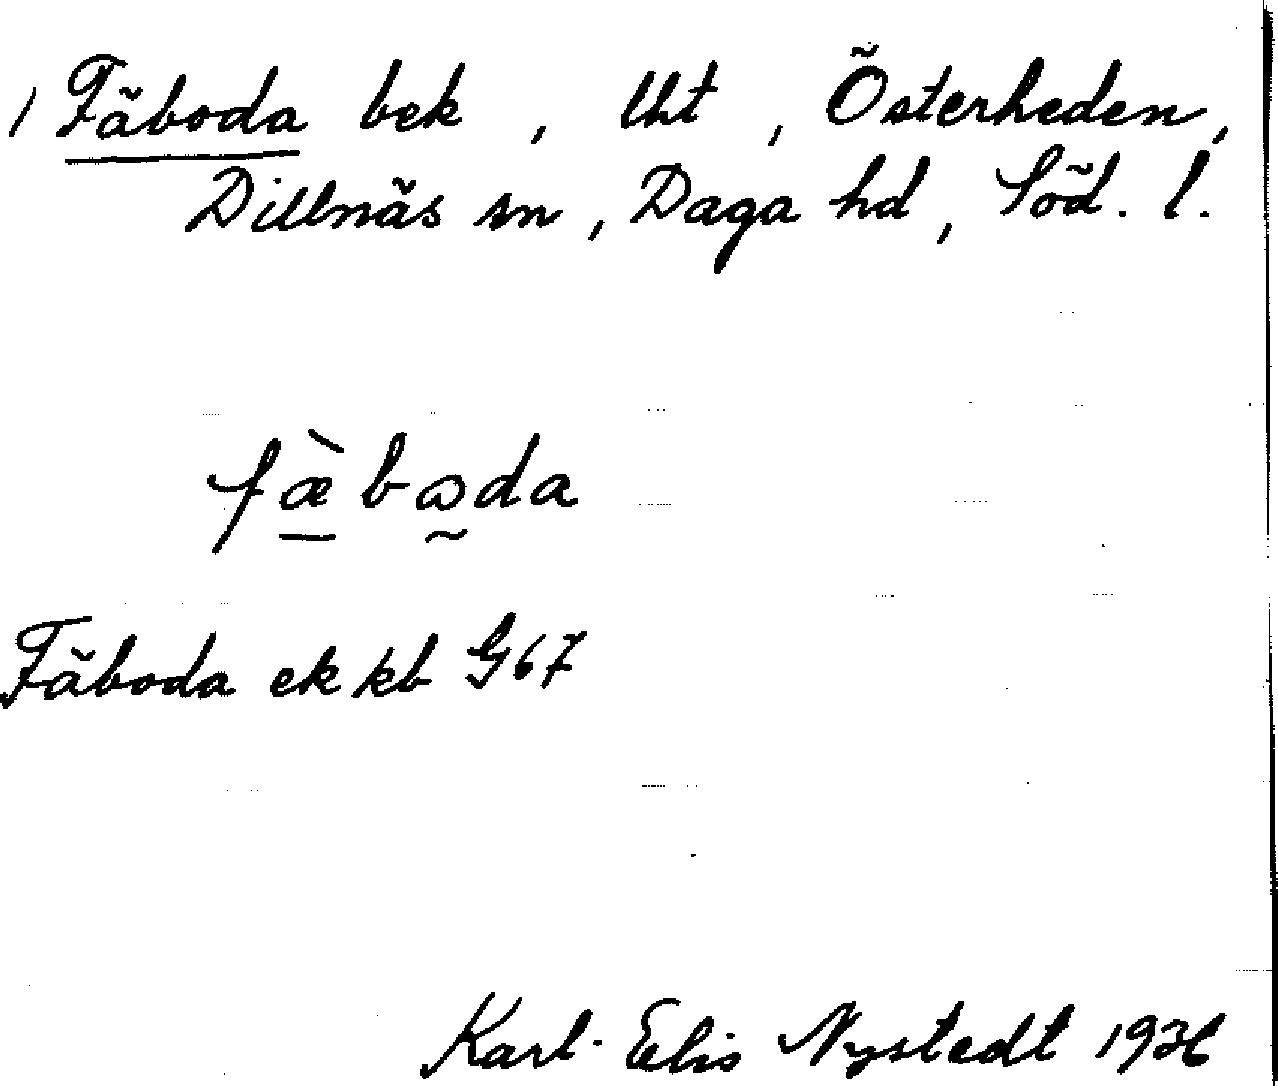 1 Fäboda bek, lht, Österheden,
Dillnäs sn, Daga hd, Söd. l.
fæ̀bɷda
Fäboda ek kb G67
Karl-Elis Nystedt 1936